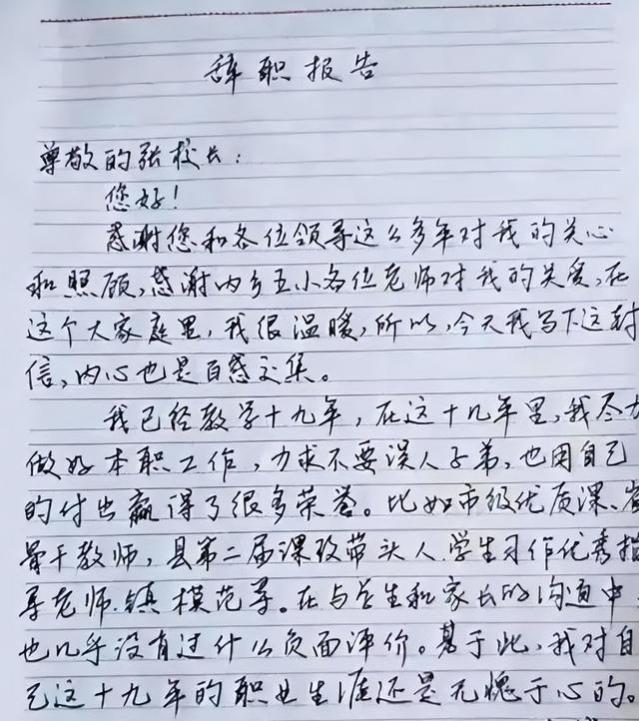 辞职报告
尊敬的张校长：
您好！
感谢您和各位领导这么多年对我的关心
和照顾,感谢内乡五小各位老师对我的关爱,在
这个大家庭里,我很温暖,所以,今天我写下这封
信,内心也是百感交集。
我已经教学十九年,在这十几年里,我尽力
做好本职工作,力求不要误人子弟,也用自己
的付出赢得了很多荣誉。比如市级优质课、省
骨干教师,县第二届课改带头人.学生习作优秀指
导老师.镇模范等。在与学生和家长的沟通中
也几乎没有过什么负面评价。基于此,我对自
己这十九年的职业生涯还是无愧于心的。